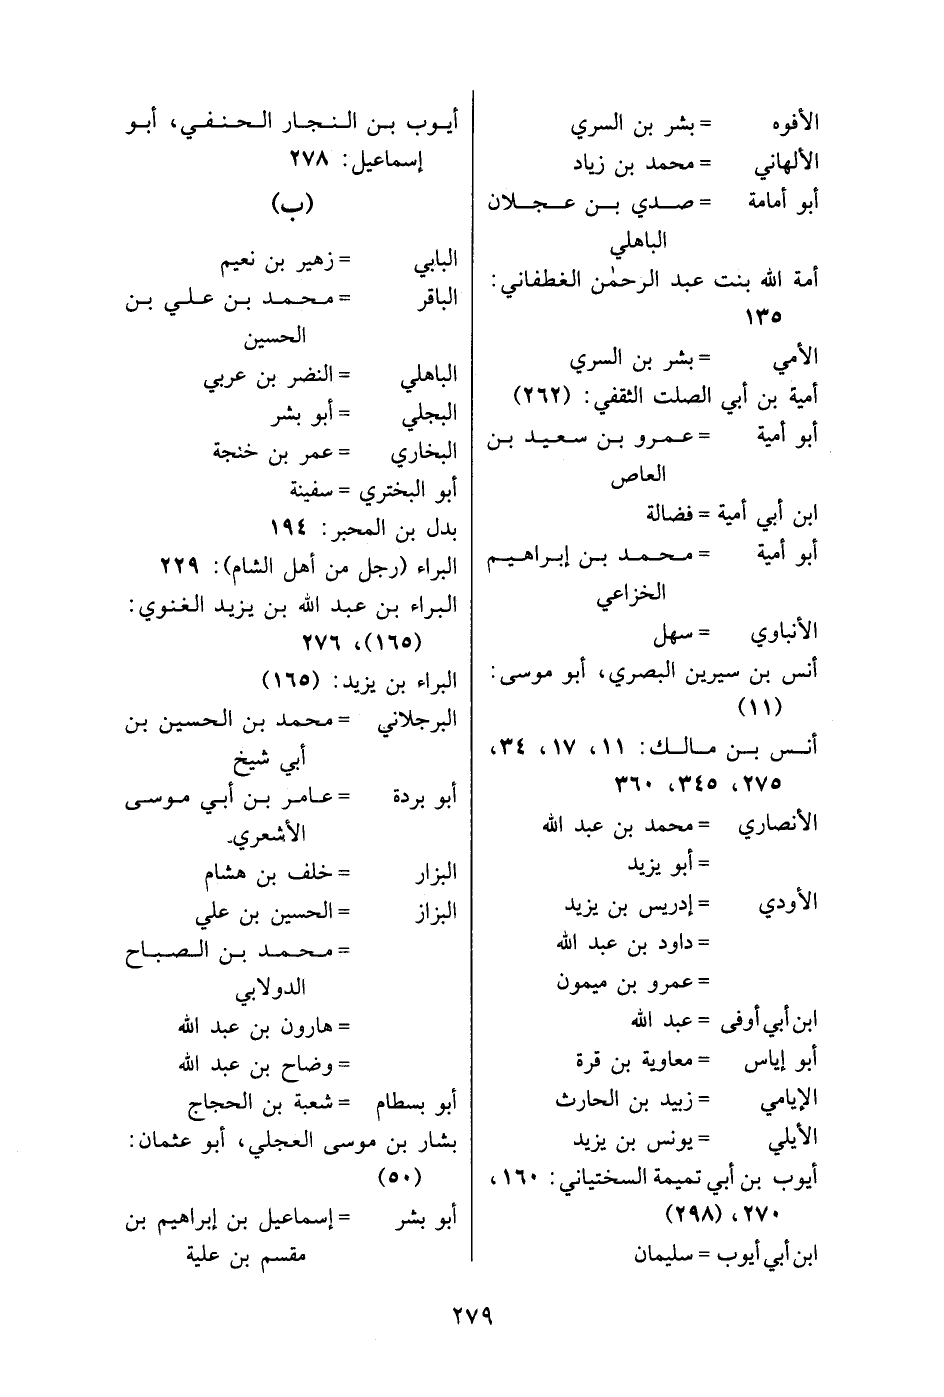 الأفوه = بشر بن السري
الألهاني = محمد بن زياد
أبو أمامة = صدي بن عجلان
الباهلي
أمة الله بنت عبد الرحمٰن الغطفاني:
١٣٥
الأمي = بشر بن السري
أمية بن أبي الصلت الثقفي: (٢٦٢)
أبو أمية = عمرو بن سعيد بن
العاص
ابن أبي أمية = فضالة
أبو أمية = محمد بن إبراهيم
الخزاعي
الأنباوي = سهل
أنس بن سيرين البصري، أبو موسى:
(١١)
أنس بن مالك: ١١، ١٧، ٣٤،
٢٧٥، ٣٤٥، ٣٦٠
الأنصاري = محمد بن عبد الله
= أبو يزيد
الأودي = إدريس بن يزيد
= داود بن عبد الله
= عمرو بن ميمون
ابن أبي أوفى = عبد الله
أبو إياس = معاوية بن قرة
الإيامي = زبيد بن الحارث
الأيلي = يونس بن يزيد
أيوب بن أبي تميمة السختياني: ١٦٠،
٢٧٠، (٢٩٨)
ابن أبي أيوب = سليمان
أيوب بن النجار الحنفي، أبو
إسماعيل: ٢٧٨
(ب)
البابي = زهير بن نعيم
الباقر = محمد بن علي بن
الحسين
الباهلي = النضر بن عربي
البجلي = أبو بشر
البخاري = عمر بن خنجة
أبو البختري = سفينة
بدل بن المحبر: ١٩٤
البراء (رجل من أهل الشام): ٢٢٩
البراء بن عبد الله بن يزيد الغنوي:
(١٦٥)، ٢٧٦
البراء بن يزيد: (١٦٥)
البرجلاني = محمد بن الحسين بن
أبي شيخ
أبو بردة = عامر بن أبي موسى
الأشعري.
البزار = خلف بن هشام
البزاز = الحسين بن علي
= محمد بن الصباح
الدولابي
= هارون بن عبد الله
= وضاح بن عبد الله
أبو بسطام = شعبة بن الحجاج
بشار بن موسى العجلي، أبو عثمان:
(٥٠)
أبو بشر = إسماعيل بن إبراهيم بن
مقسم بن علية
٢٧٩